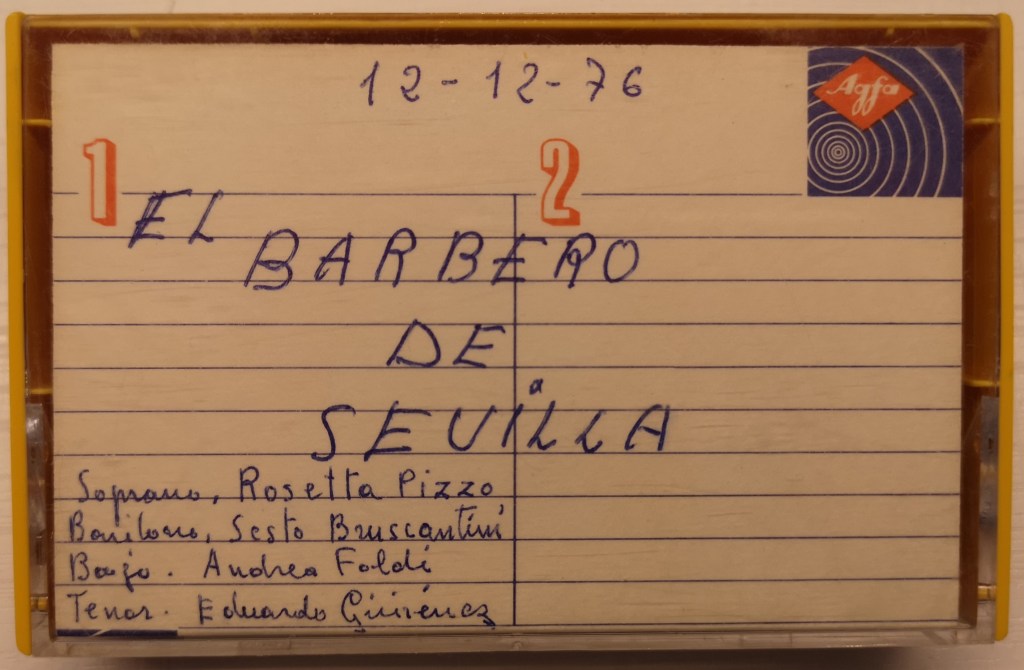 12-12-76
Agfa
1
2
EL
BARBERO
DE
SEVILLA
Soprano, Rosetta Pizzo
Baritono, Sesto Bruscantini
Bajo. Andrea Foldi
Tenor. Eduardo Giménez